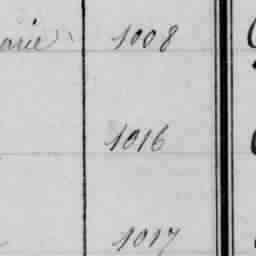 arie 1008
1016
1017